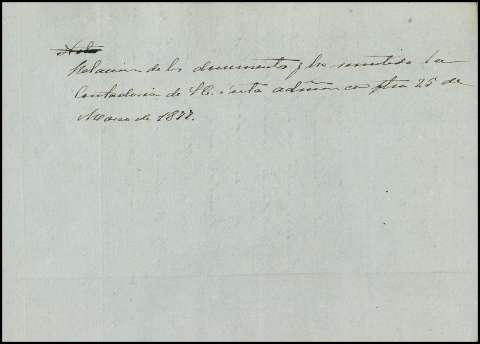 Relacion de los documentos q. ha remitido la
Contaduria de H.C. á esta admon con fha 25 de
Marzo de 1877.